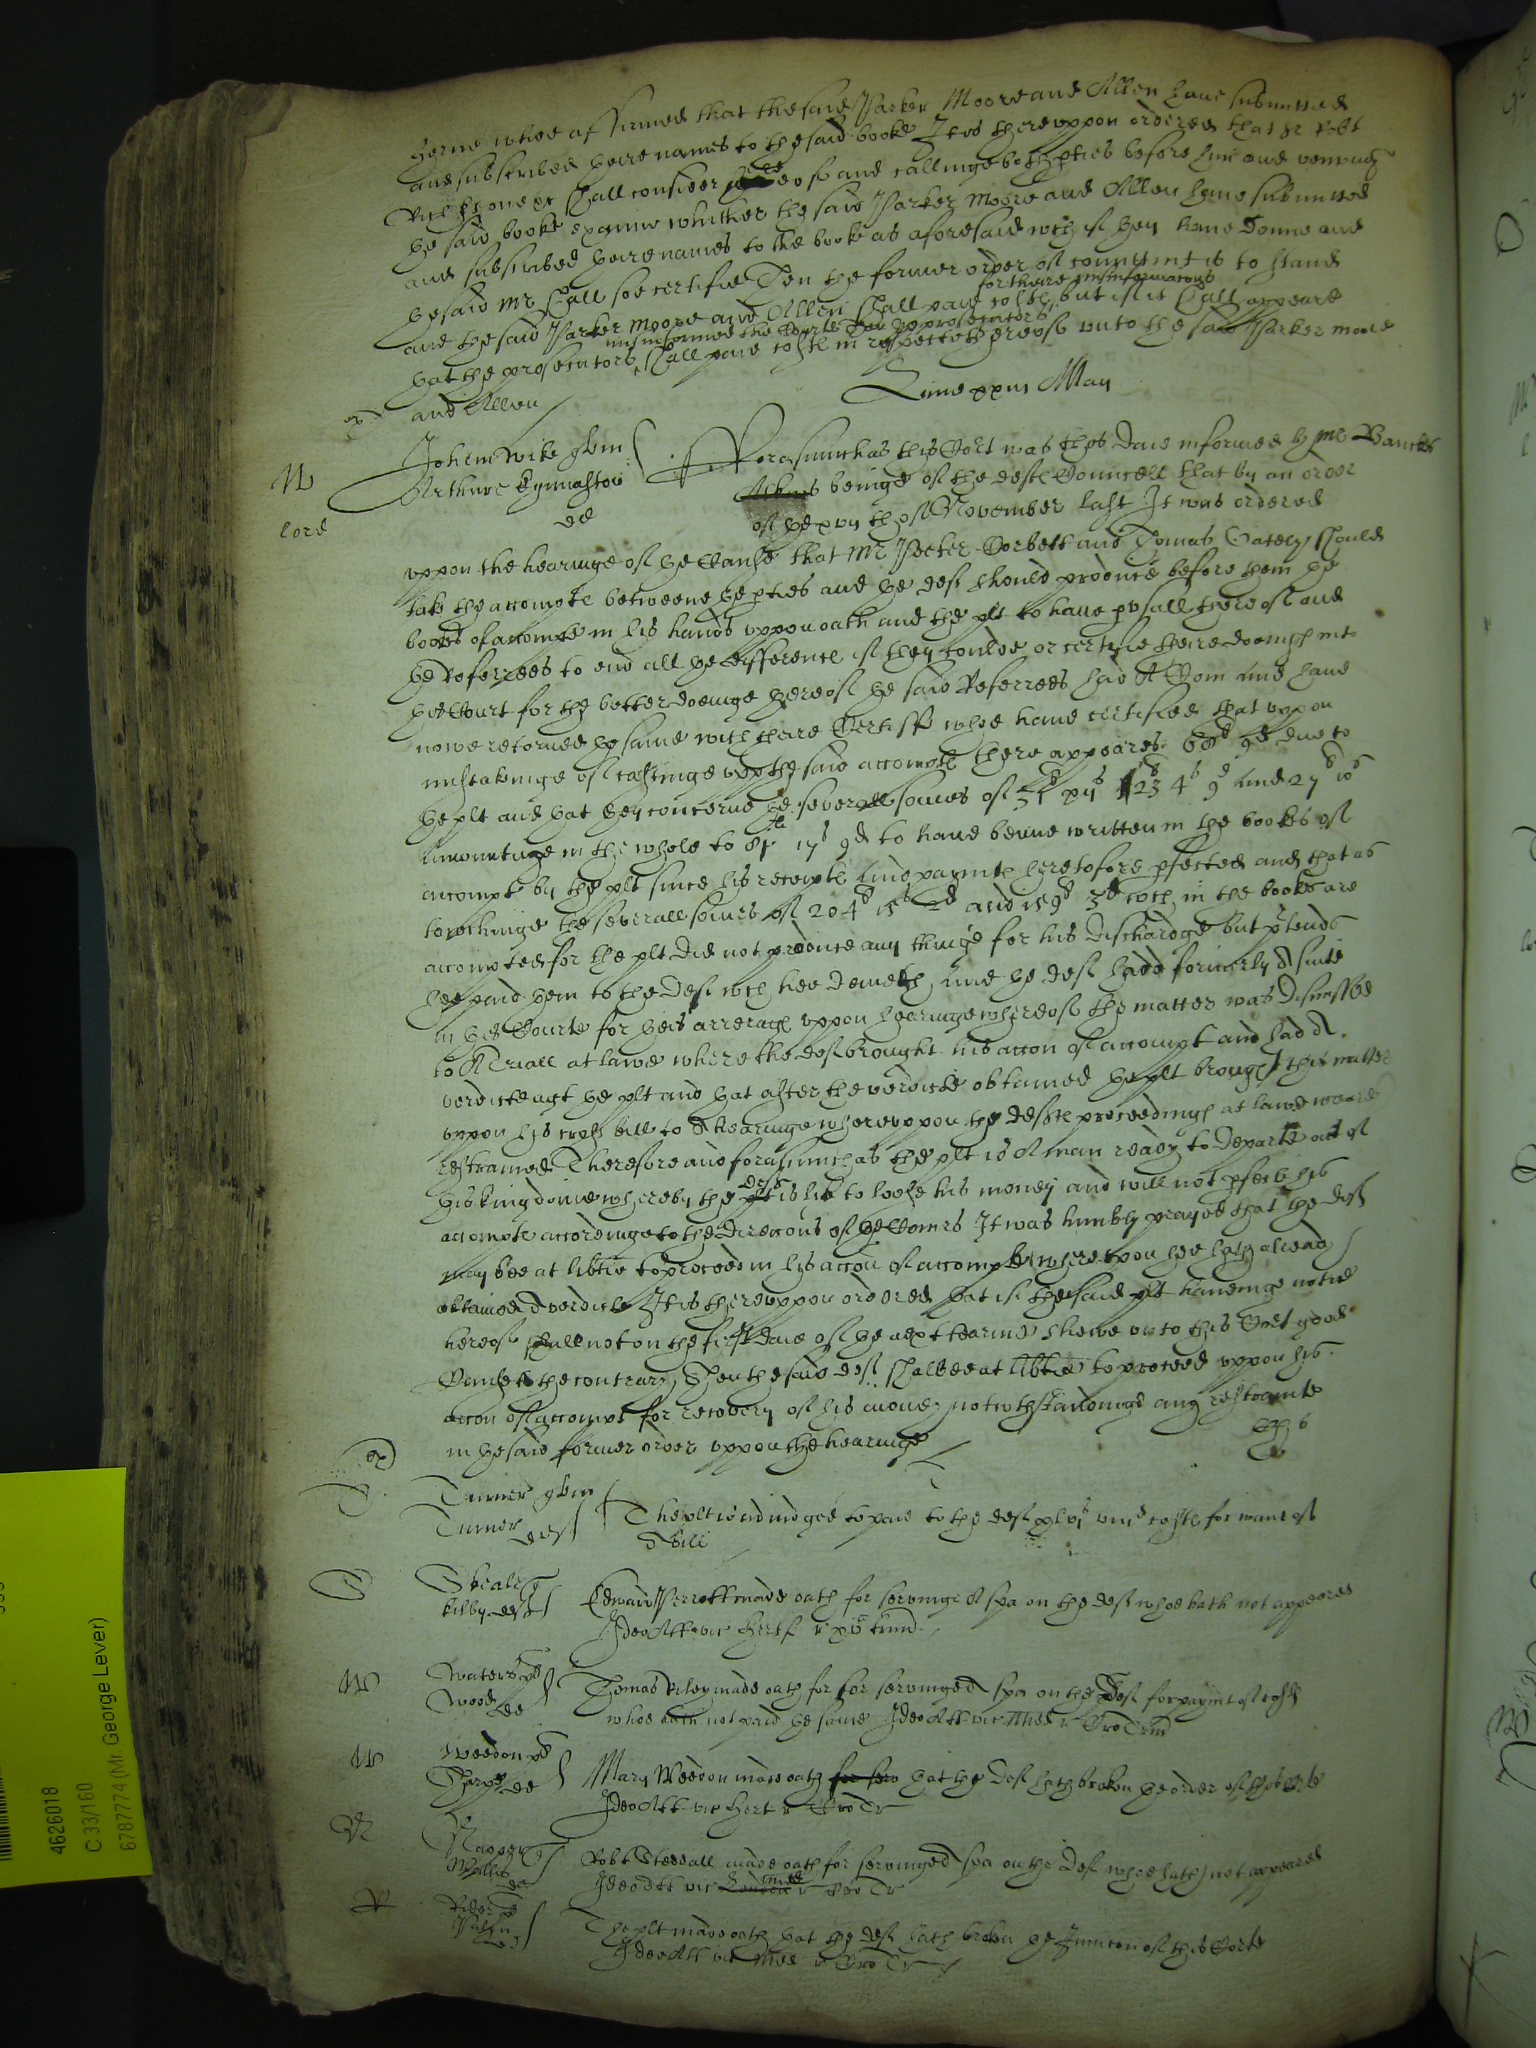 terme whoe affirmed that the said Parker Moore and Allen have submitted
and subscribed theire names to the said booke It is thereuppon ordered that Sr Robt
Rich Shall consider thereof and callinge both pties before him and veiwing
the said booke examine whither the said Parker Moore and Allen have submitted
and subscribed theire names to the booke as aforesaid wch if they have donne and
the said Mr Shall soe certifie Then the former order of comittmt is to stand
and the said Parker Moore and Allen Shall paie costs for theire misinformacons but if it Shall appeare
that the prosecutors misinformed the Courte the prosecutors Shall paie costs in respecte thereof unto the said Parker Moore
and Allen
Lune xxvij May
W
lord
John Wike quer
Arthure Kynnaston
de
Forasmuch as this Cort was this daie informed by Mr Banckes
beinge of the defts Councell that by an order
of the xvij th of November last It was ordered
uppon the hearinge of the Cause that Mr Peeter Corbett and Thomas Gately should
take the accompts betweene the pties and the deft should produce before them the
bookes of accompte in his hands uppon oath and the plt to have pusall thereof and
the Referrees to end all the difference if they coulde or certifie theire doeings into
this Court for the better doeinge thereof the said Referrees had A Com and have
nowe retorned the same with theire Certiff whoe have certified that uppon
mistakinge of castinge upp the said accompts there appeares 9d due to
the plt and that they conceive the severall somes of 51 xvjs 123 4s 9d and 27 10s
amountinge in the whole to 17s 9d to have beene written in the bookes of
accompt by the plt since his receipts and paymts heretofore pfected and that as
towchinge the severall somes of 204 15s 2d and 159 3d wch in the booke are
accompted for the plt did not produce any thinge for his dischardge but ptends
hee paid them to the deft wch hee denieth, and the deft hadd formerly A suite
in this Courte for this arrerags uppon hearinge whereof the matter was dismissed
to A Triall at lawe where the deft brought his accon of accompt and had A
verdicte agt the plt and that after the verdicte obtained the plt brought this matter
uppon his cross bill to A hearinge whereuppon the defts proceedings at lawe weare
restrained. Therefore and forasmuch as the plt is A man ready to departe out of
this kingdome whereby the deft is like to loose his money and will not pfecte his
accompte accordinge to the direccons of the Comrs It was humbly prayed that the deft
may bee at libtie to proceed in his accon of accompte whereuppon hee hath alreadie
obtained A verdicte It is thereuppon ordered that if the said plt haveinge notice
hereof shall not on the first daie of the next tearme shewe unto this Cort good
Cause to the contrary Then the said deft Shalbee at libtie to proceed uppon his
accon of accompt for recovery of his money notwthstandinge any restrainte
in the said former order uppon the hearinge
T
Turner quer
Turner deft
The plt is adiudged to paie to the deft xls vjs viijd costs for want of
A bill
Kilby deft
Edward Perrott made oath for servinge A spa on the deft whoe hath not appeared
Ideo Att vic Hertf r xv Trin
W
Waters
Wood de
Thomas Riley made oath for for servinge A spa on the deft for paymt of costs
whoe hath not paid the same Ideo Att vic Midd r Cro Trin
W
Weedon
Tharpe de
Mary Weedon made oath for serv that the deft hath broken the order of this Corte
Ideo Att vic Hert r Cro Tr
N
Napper
Willis de
Robt Steddall made oath for servinge A spa on the deft whoe hath not appeared
Ideo Att vic r Cro Tr
R
The plt made oath that the deft hath broken the Iniunccon of this Corte
Ideo Att vic Midd r Cro Tr
4626018
C 33/160
6787774 (Mr George Lever)